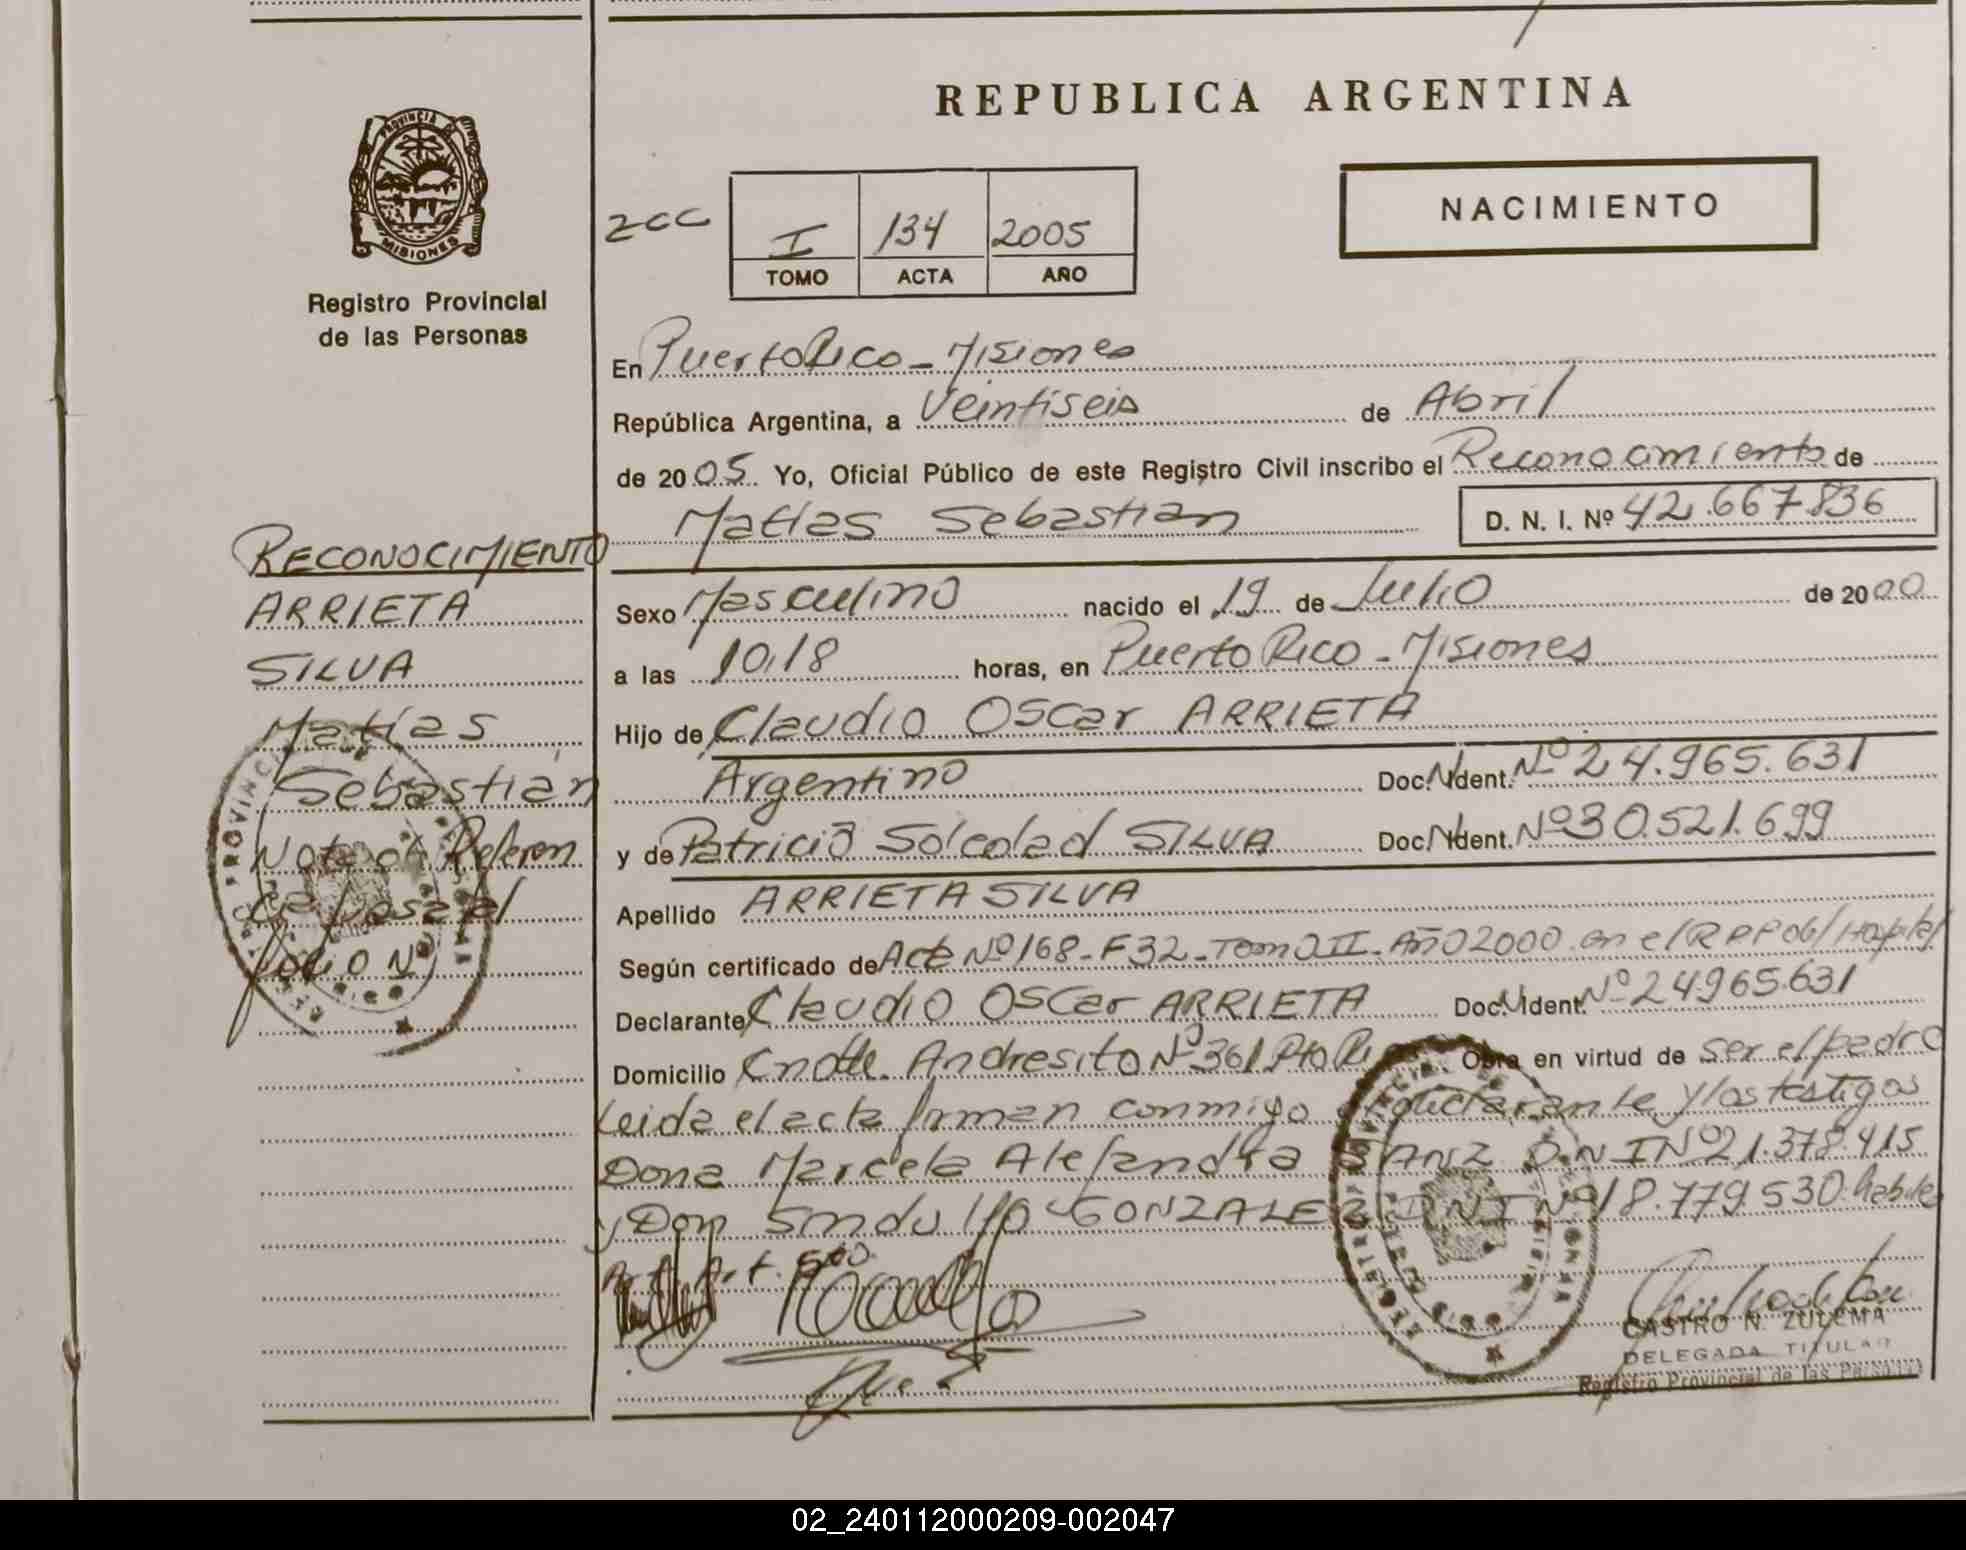 REPUBLICA ARGENTINA
PROVINCIA DE
MISIONES
Registro Provincial
de las Personas
NACIMIENTO
2CC
I 134 2005
TOMO ACTA AÑO
En Puerto Rico - Misiones
República Argentina, a Veintiseis de Abril
de 2005. Yo, Oficial Público de este Registro Civil inscribo el Reconocimiento de
Matías Sebastian D. N. I. Nº 42.667.836
Sexo Masculino nacido el 19 de Julio de 2000
a las 10,18 horas, en Puerto Rico - Misiones
Hijo de Claudio Oscar ARRIETA
Argentino Doc. Ident. Nº 24.965.631
y de Patricia Soledad SILVA Doc. Ident. Nº 30.521.699
Apellido ARRIETA SILVA
Según certificado de Acta Nº 168 - F 32 - Tomo II - Año 2000 en el
Declarante Claudio Oscar ARRIETA Doc. Ident. Nº 24965.631
Domicilio Cndte. Andresito Nº 361 Pto Obra en virtud de ser el padre
Leida el acta firman conmigo declarante y los testigos
Dona Marcela Alejandra SANZ D.N I Nº 21.378.415
y Don GONZALEZ DNI Nº 18.779.530
CASTRO N. ZULEMA
DELEGADA TITULAR
Registro Provincial de las Personas
RECONOCIMIENTO
ARRIETA
SILVA
Matías
Sebastián
Nota de Referen
Folio Nº
02_240112000209-002047